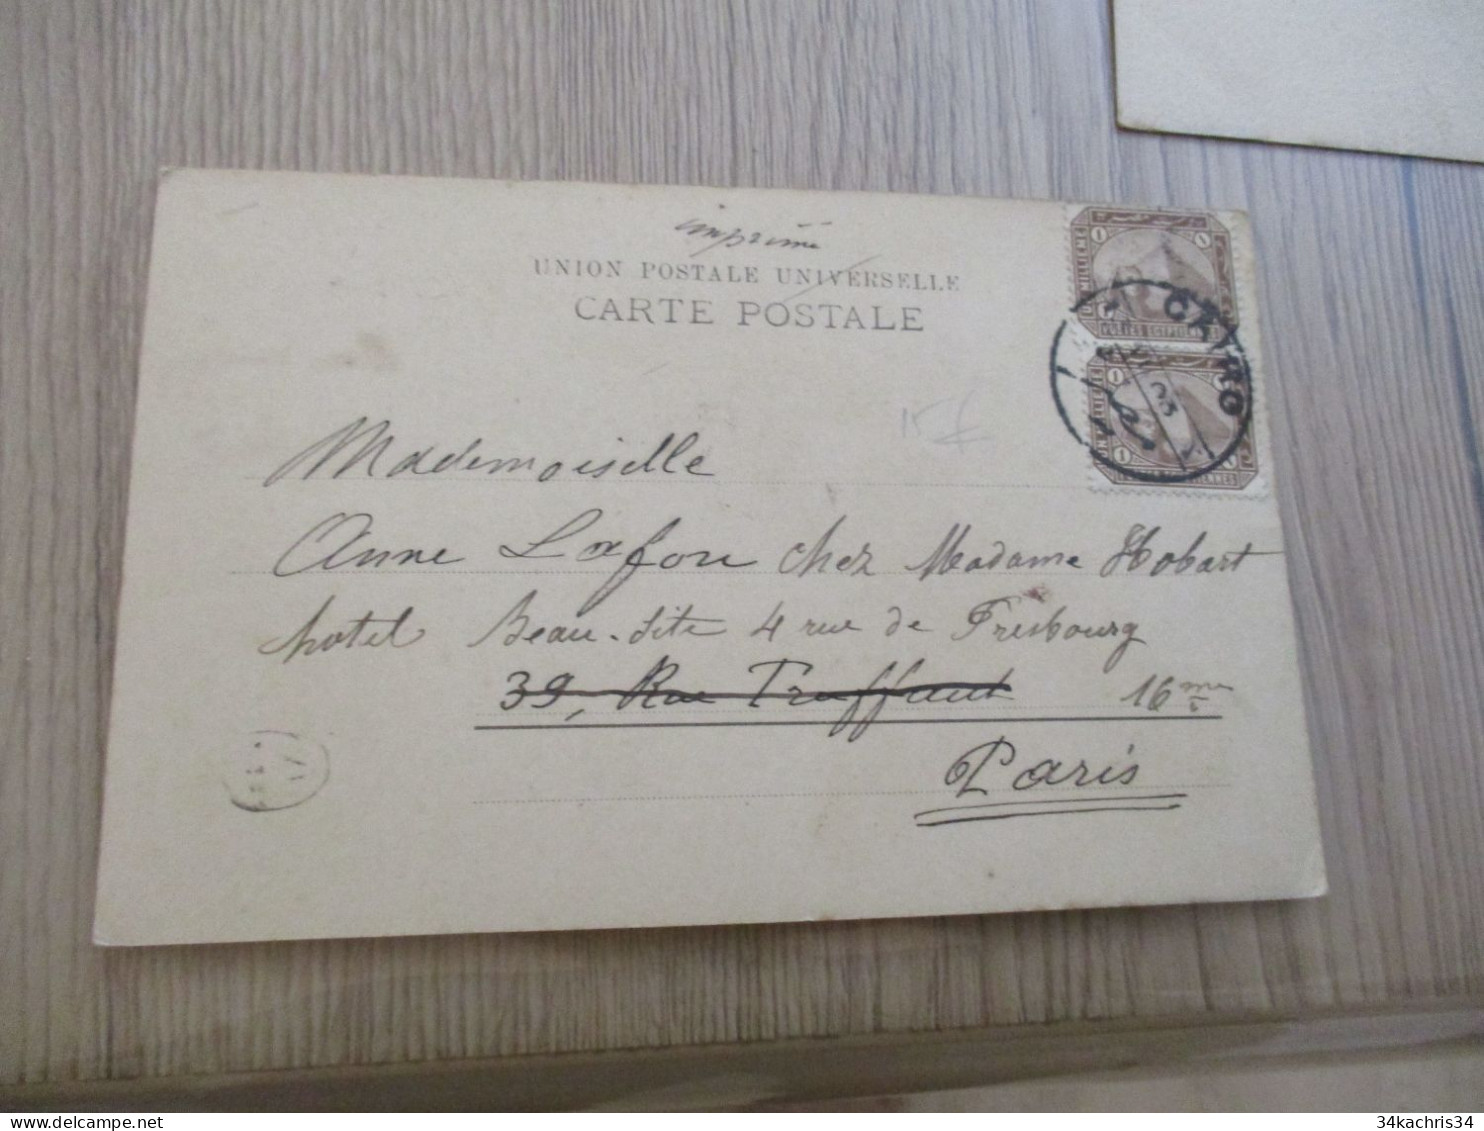 imprimé
UNION POSTALE UNIVERSELLE
CARTE POSTALE
CAIRO
15 f
Mademoiselle
Anne Lafon chez Madame Hobart
hotel Beau-Site 4 rue de Presbourg
39, Rue Truffaut 16ème
Paris
34kachris34